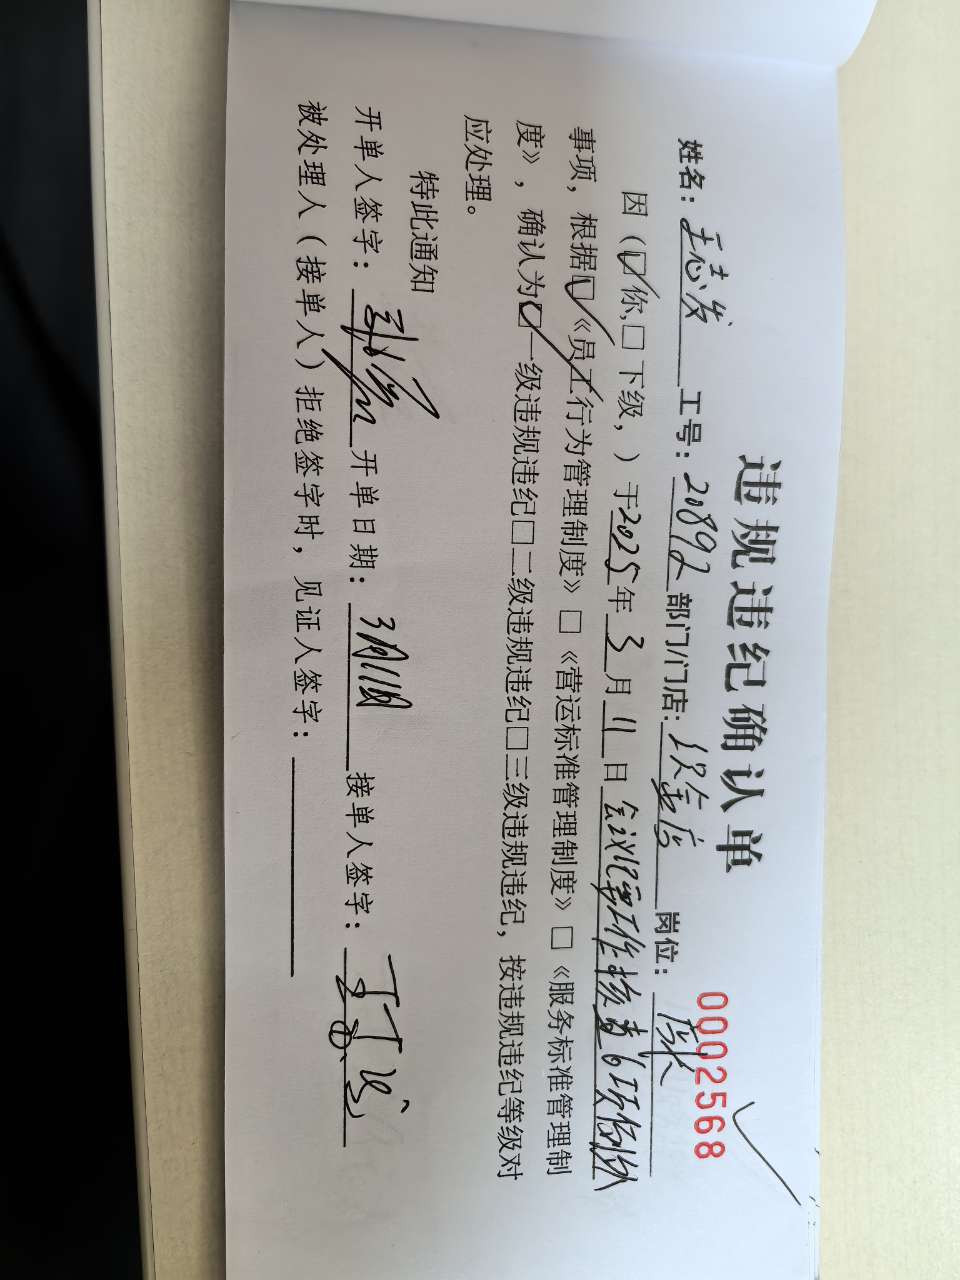 违规违纪确认单
0002568
姓名：王志发 工号：20892 部门/门店： 店 岗位：店长
因（☑你,□下级，）于2025年3月11日 会议 工作 6项
事项，根据☑《员工行为管理制度》□《营运标准管理制度》□《服务标准管理制
度》，确认为☑一级违规违纪□二级违规违纪□三级违规违纪，按违规违纪等级对
应处理。
特此通知
开单人签字： 开单日期：3月11日 接单人签字：
被处理人（接单人）拒绝签字时，见证人签字：